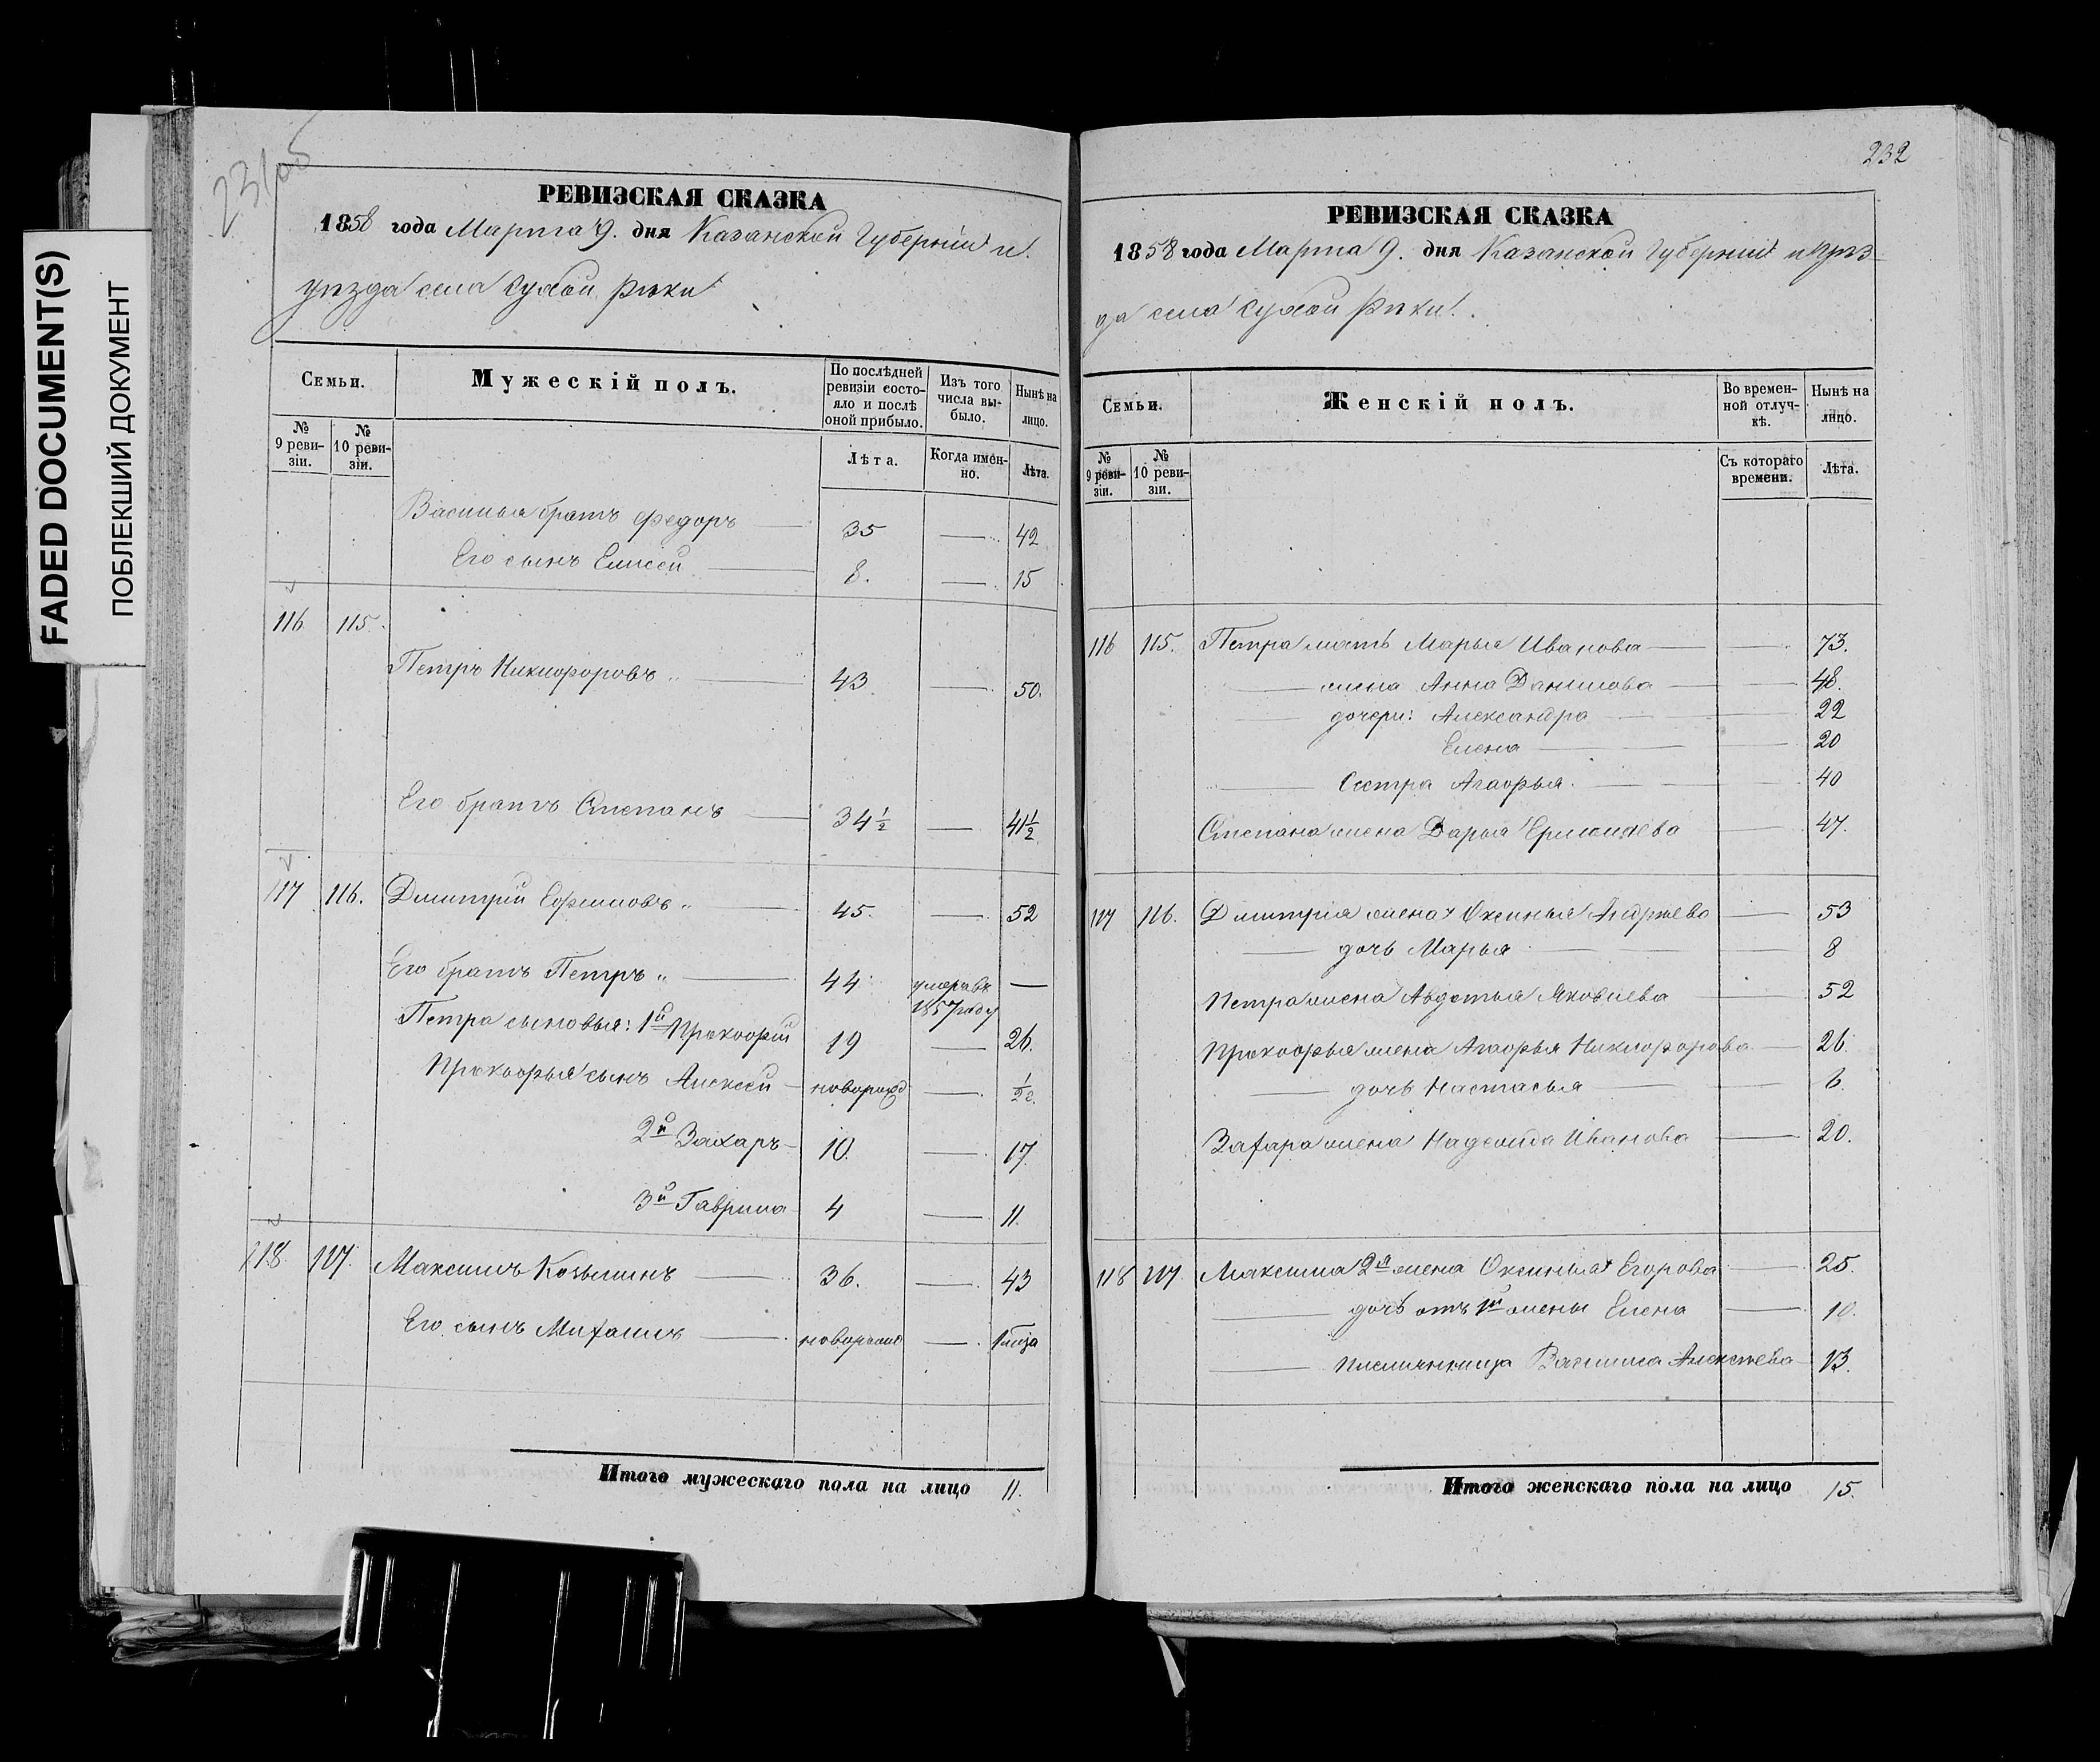 FADED DOCUMENT(S)
ПОБЛЕКШИЙ ДОКУМЕНТ
231об
РЕВИЗСКАЯ СКАЗКА
1858 года Марта 9. дня Казанской Губерніи и
уѣзда села Сухой Рѣки
Семьи.
Мужескій полъ.
По послѣдней ревизіи состояло и послѣ оной прибыло.
Изъ того числа выбыло.
Нынѣ на лицо.
№ 9 ревизіи.
№ 10 ревизіи.
Лѣта.
Когда именно.
Лѣта.
Василья братъ Федоръ 35 — 42
Его сынъ Елисей 8. — 15
116. 115.
Петръ Никифоровъ 43 — 50.
Его братъ Степанъ 34 1/2 — 41 1/2
117 116. Дмитрій Ефимовъ 45. — 52
Его братъ Петръ 44 умеръ въ 1857 году —
Петра сыновья: 1й Прокофій 19 — 26.
Прокофья сынъ Алексѣй новорожд —
2й Захаръ 10. — 17
3й Гаврила 4 — 11.
118. 117. Максимъ Козьминъ 36. — 43
Его сынъ Михаилъ — 1
Итого мужескаго пола на лицо 11.
232
РЕВИЗСКАЯ СКАЗКА
1858 года Марта 9. дня Казанской Губерніи и уѣз
да села Сухой Рѣки.
Семьи.
Женскій полъ.
Во временной отлучкѣ.
Нынѣ на лицо.
№ 9 ревизіи.
№ 10 ревизіи.
Съ котораго времени.
Лѣта.
116 115. Петра мать Марья Иванова — 73.
— жена Анна Данилова — 48.
— дочери: Александра — 22
Елена — 20
— Сестра Агафья — 40
Степана жена Дарья Ермолаева — 47.
117 116. Дмитрія жена Оксинья Андрѣева — 53
— дочь Марья — 8
Петра жена Авдотья Яковлева — 52
Прокофья жена Агафья Никифорова — 26.
— дочь Настасья — 6.
Захара жена Надежда Иванова — 20.
118 117 Максима 2я жена Оксинья Егорова — 25.
— дочь отъ 1й жены Елена — 10.
— племянница Василиса Алексѣева 13.
Итого женскаго пола на лицо 15.